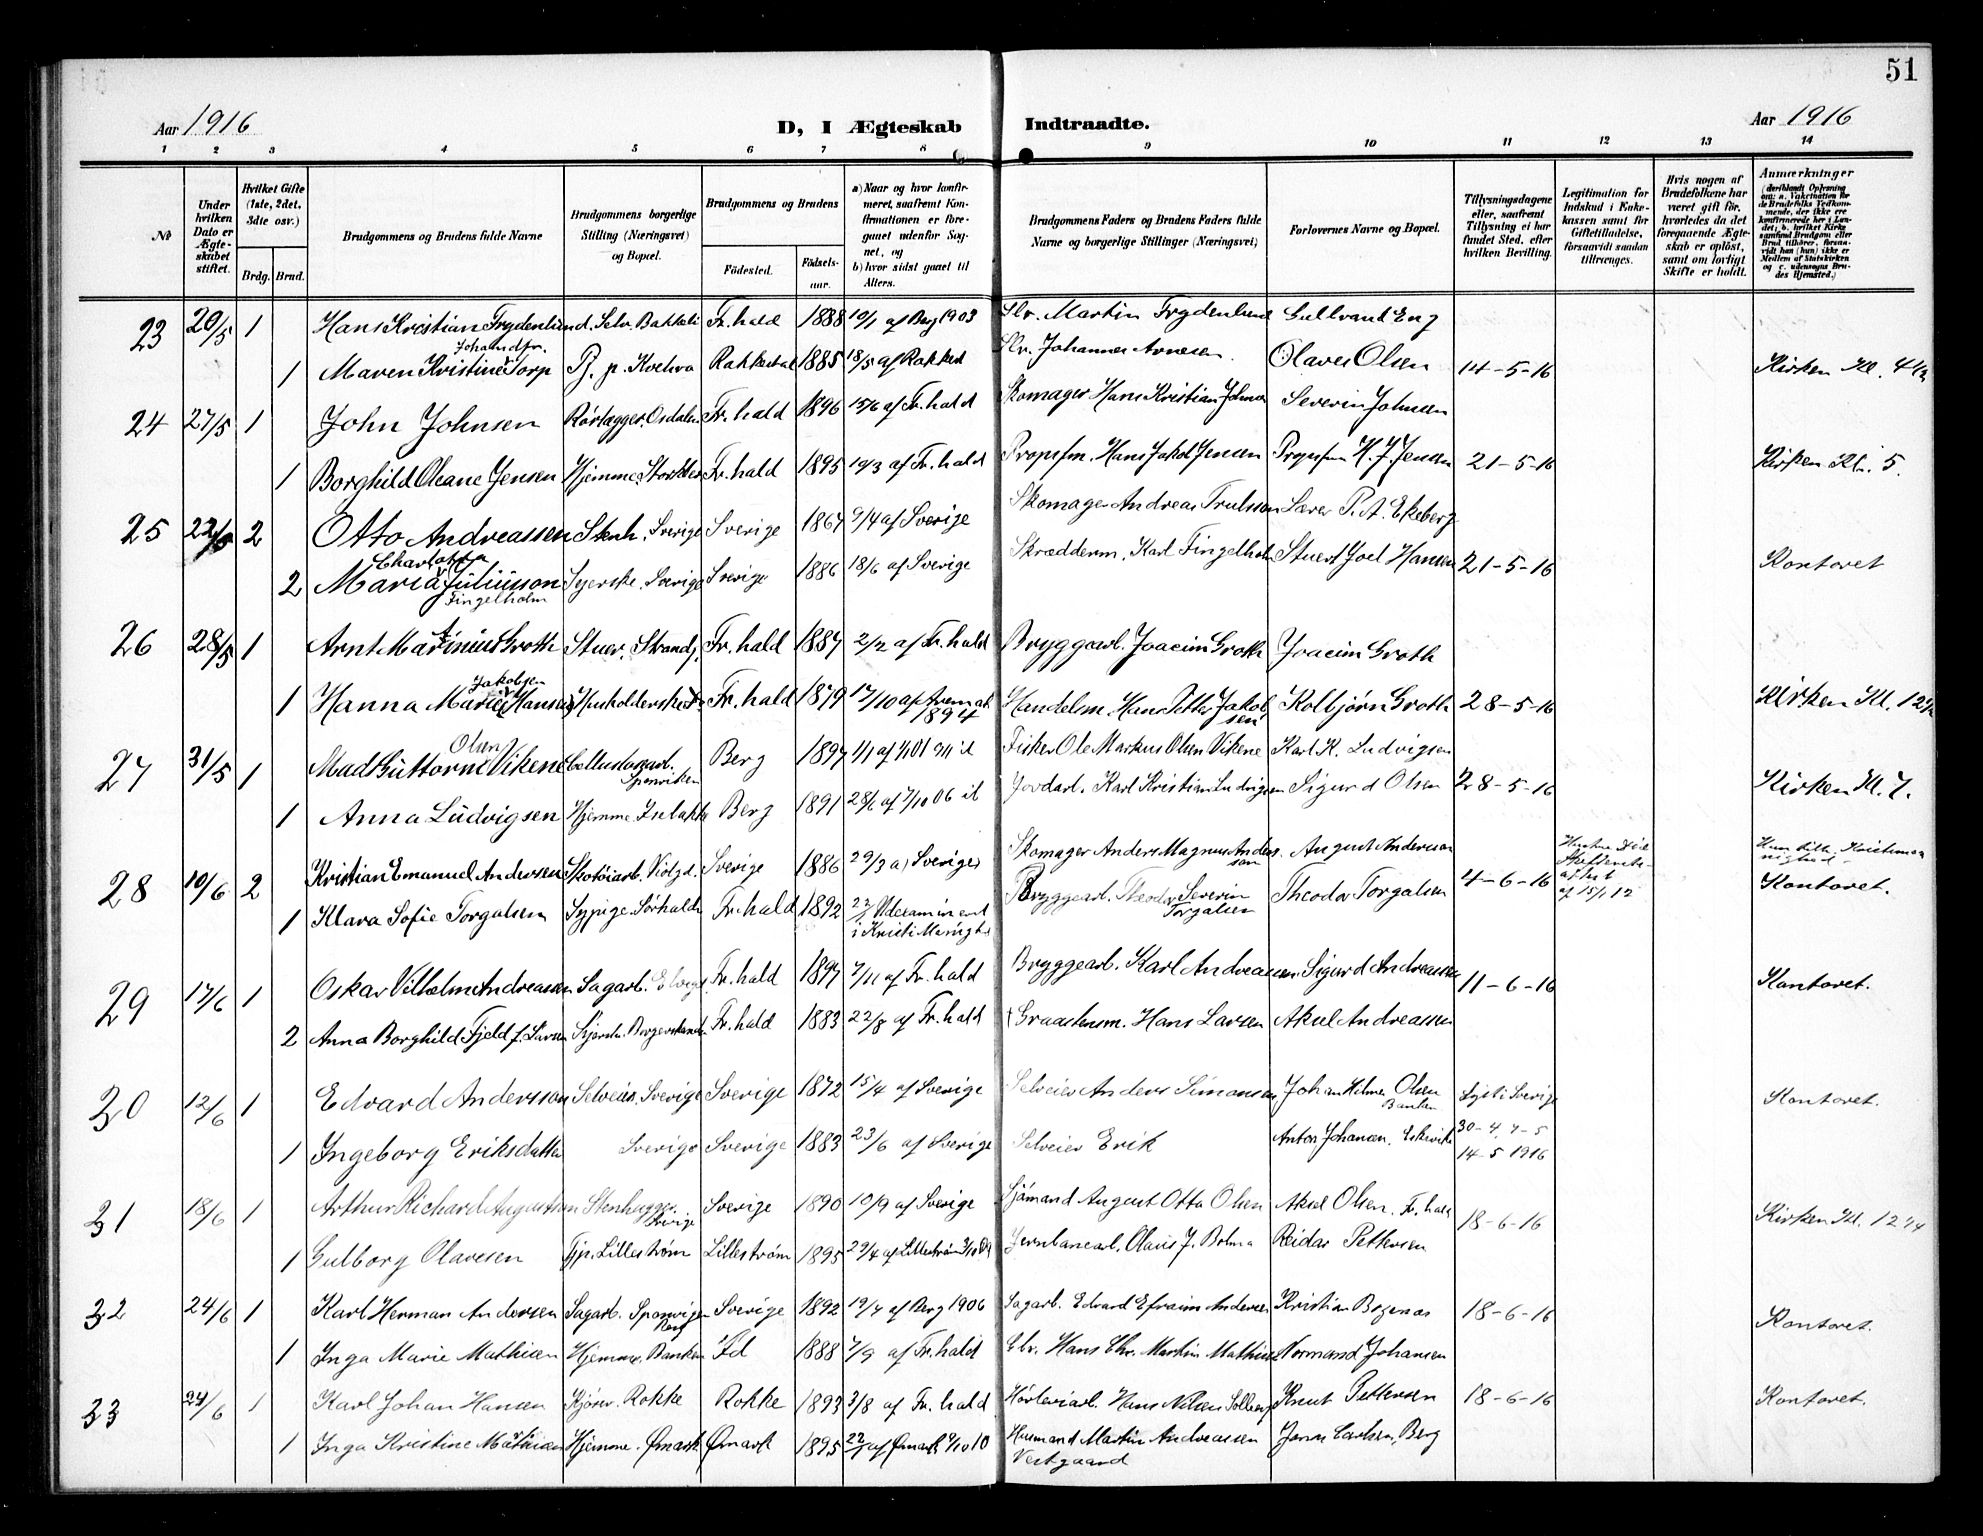 51
Aar 1916
D, I Ægteskab Indtraadte.
Aar 1916
1 2 3 4 5 6 7 8 9 10 11 12 13 14
№
Under hvilken Dato er Ægteskabet stiftet.
Hvilket Gifte (1ste, 2det, 3die osv.)
Brdg. Brud.
Brudgommens og Brudens fulde Navne
Brudgommens borgerlige Stilling (Næringsvei) og Bopæl.
Brudgommens og Brudens
Fødested.
Fødselsaar.
a) Naar og hvor konfirmeret, saafremt Konfirmationen er foregaaet udenfor Sognet, og
b) hvor sidst gaaet til Alters.
Brudgommens Faders og Brudens Faders fulde Navne og borgerlige Stillinger (Næringsvei)
Forlovernes Navne og Bopæl.
Tillysningsdagene eller, saafremt Tillysning ei har fundet Sted, efter hvilken Bevilling.
Legitimation for Indskud i Enkekassen samt for Giftetilladelse, forsaavidt saadan tiltrænges.
Hvis nogen af Brudefolkene har været gift før, hvorledes da det foregaaende Ægteskab er opløst, samt om lovligt Skifte er holdt.
Anmærkninger
23 20/5 1 Hans Kristian Frydenlund. Selv. Bakkeli Fr.hald 1888 10/1 af Berg 1903 Martin Frydenlund Gullvand Eng
Johannesen
1 Maren Kristine Torp Pj. p. Rakkestad 1885 18/5 af Rakkest Johannes Olaves Olsen 14-5-16 Kirken Kl. 4
24 27/5 1 John Johnsen Rørlægger. Osdalen Fr. hald 1896 15/6 af Fr. hald Skomager Hans Kristian Johnsen Severin Johnsen
1 Borghild Oleane Jensen Hjemme. Fr. hald 1895 19/3 af Fr. hald Hans Jakob Jensen H. J. Jensen 21-5-16 Kirken Kl. 5.
25 22/5 2 Otto Andreassen Stenh. Sverige Sverige 1867 9/4 af Sverige Skomager Andreas Trulsson Lærer P. A. Ekeberg
Charlotta
2 Maria Juliusson Syerske. Sverige Sverige 1886 18/6 af Sverige Skrædderm. Karl Fingelholm Stuert Joel Hansen 21-5-16 Kontoret
Fingelholm
26 28/5 1 Arnt Marinius Groth Stuer. Strandg. Fr. hald 1887 2/2 af Fr. hald Bryggearb. Joacim Groth Joacim Groth
Jakobsen
1 Hanna Marie Hansen Husholderske Fr. hald 1879 17/10 af Aremark 1894 Handelsm. Hans Petter Jakobsen Kolbjørn Groth 28-5-16 Kirken Kl. 12 1/2
Olsen
27 31/5 1 Mads Guttorm Vikene Cellulosearb. Sponviken Berg 1897 Fisker Ole Markus Olsen Vikene Karl K. Ludvigsen
1 Anna Ludvigsen Hjemme Isebakke Berg 1891 28/6 af 7/10 06 Jordarb. Karl Kristian Ludvigsen Sigurd Olsen 28-5-16 Kirken Kl. 7.
28 10/6 2 Kristian Emanuel Andersen Skotøiarb. Violgd. Sverige 1886 29/3 af Sverige Skomager Anders Magnus Andersson August Andersson
1 Klara Sofie Torgalsen Sypige. Sørhalden Fr. hald 1892 Bryggearb. Theodor Severin Torgalsen Theodor Torgalsen 4-6-16 af 15/1 12 Kontoret.
29 17/6 1 Oskar Vilhelm Andreassen Sagarb. Fr. hald 1897 7/11 af Fr. hald Bryggearb. Karl Andreassen Sigurd Andreassen 11-6-16 Kontoret.
2 Anna Borghild Fjeld f. Larsen Fr. hald 1883 22/8 af Fr. hald Graastensm. Hans Larsen Aksel Andreassen
30 12/6 1 Edvard Andersson Selveier. Sverige Sverige 1872 15/4 af Sverige Selveier Anders Simonsen Johan Hilmer Olsen Banken Lyst i Sverige Kontoret.
1 Ingeborg Eriksdatter Sverige Sverige 1883 23/6 af Sverige Selveier Erik Anton Johansen, 30-4, 7-5 14-5 1916
31 18/6 1 Arthur Richard Augustsen Stenhugger. Sverige Sverige 1890 10/9 af Sverige Sjømand August Otto Olsen Aksel Olsen. Fr. hald 18-6-16 Kirken Kl. 12
1 Gulborg Olavesen Tjp. Lillestrøm Lillestrøm 1895 29/4 af Lillestrøm Jernbanearb. Olaus J. Bolma Reidar Pettersen
32 24/6 1 Karl Herman Andersen Sagarb. Sponvigen Berg Sverige 1892 19/7 af Berg 1906 Sagarb. Edvard Efraim Andersen Kristian 18-6-16 Kontoret.
1 Inga Marie Mathisen Hjemme. Banken Id 1888 7/9 af Fr. hald Hans Chr. Martin Mathisen Normand Johansen
33 24/6 1 Karl Johan Hansen Kjører. Rokke Rokke 1893 3/8 af Fr. hald Hans Nilsen Solberg Knut Pettersen 18-6-16 Kontoret.
1 Inga Kristine Mathisen Hjemme. Ømark Ømark 1895 af Ømark 9/10 10 Husmand Martin Andreassen Vestgaard Carlsen, Berg